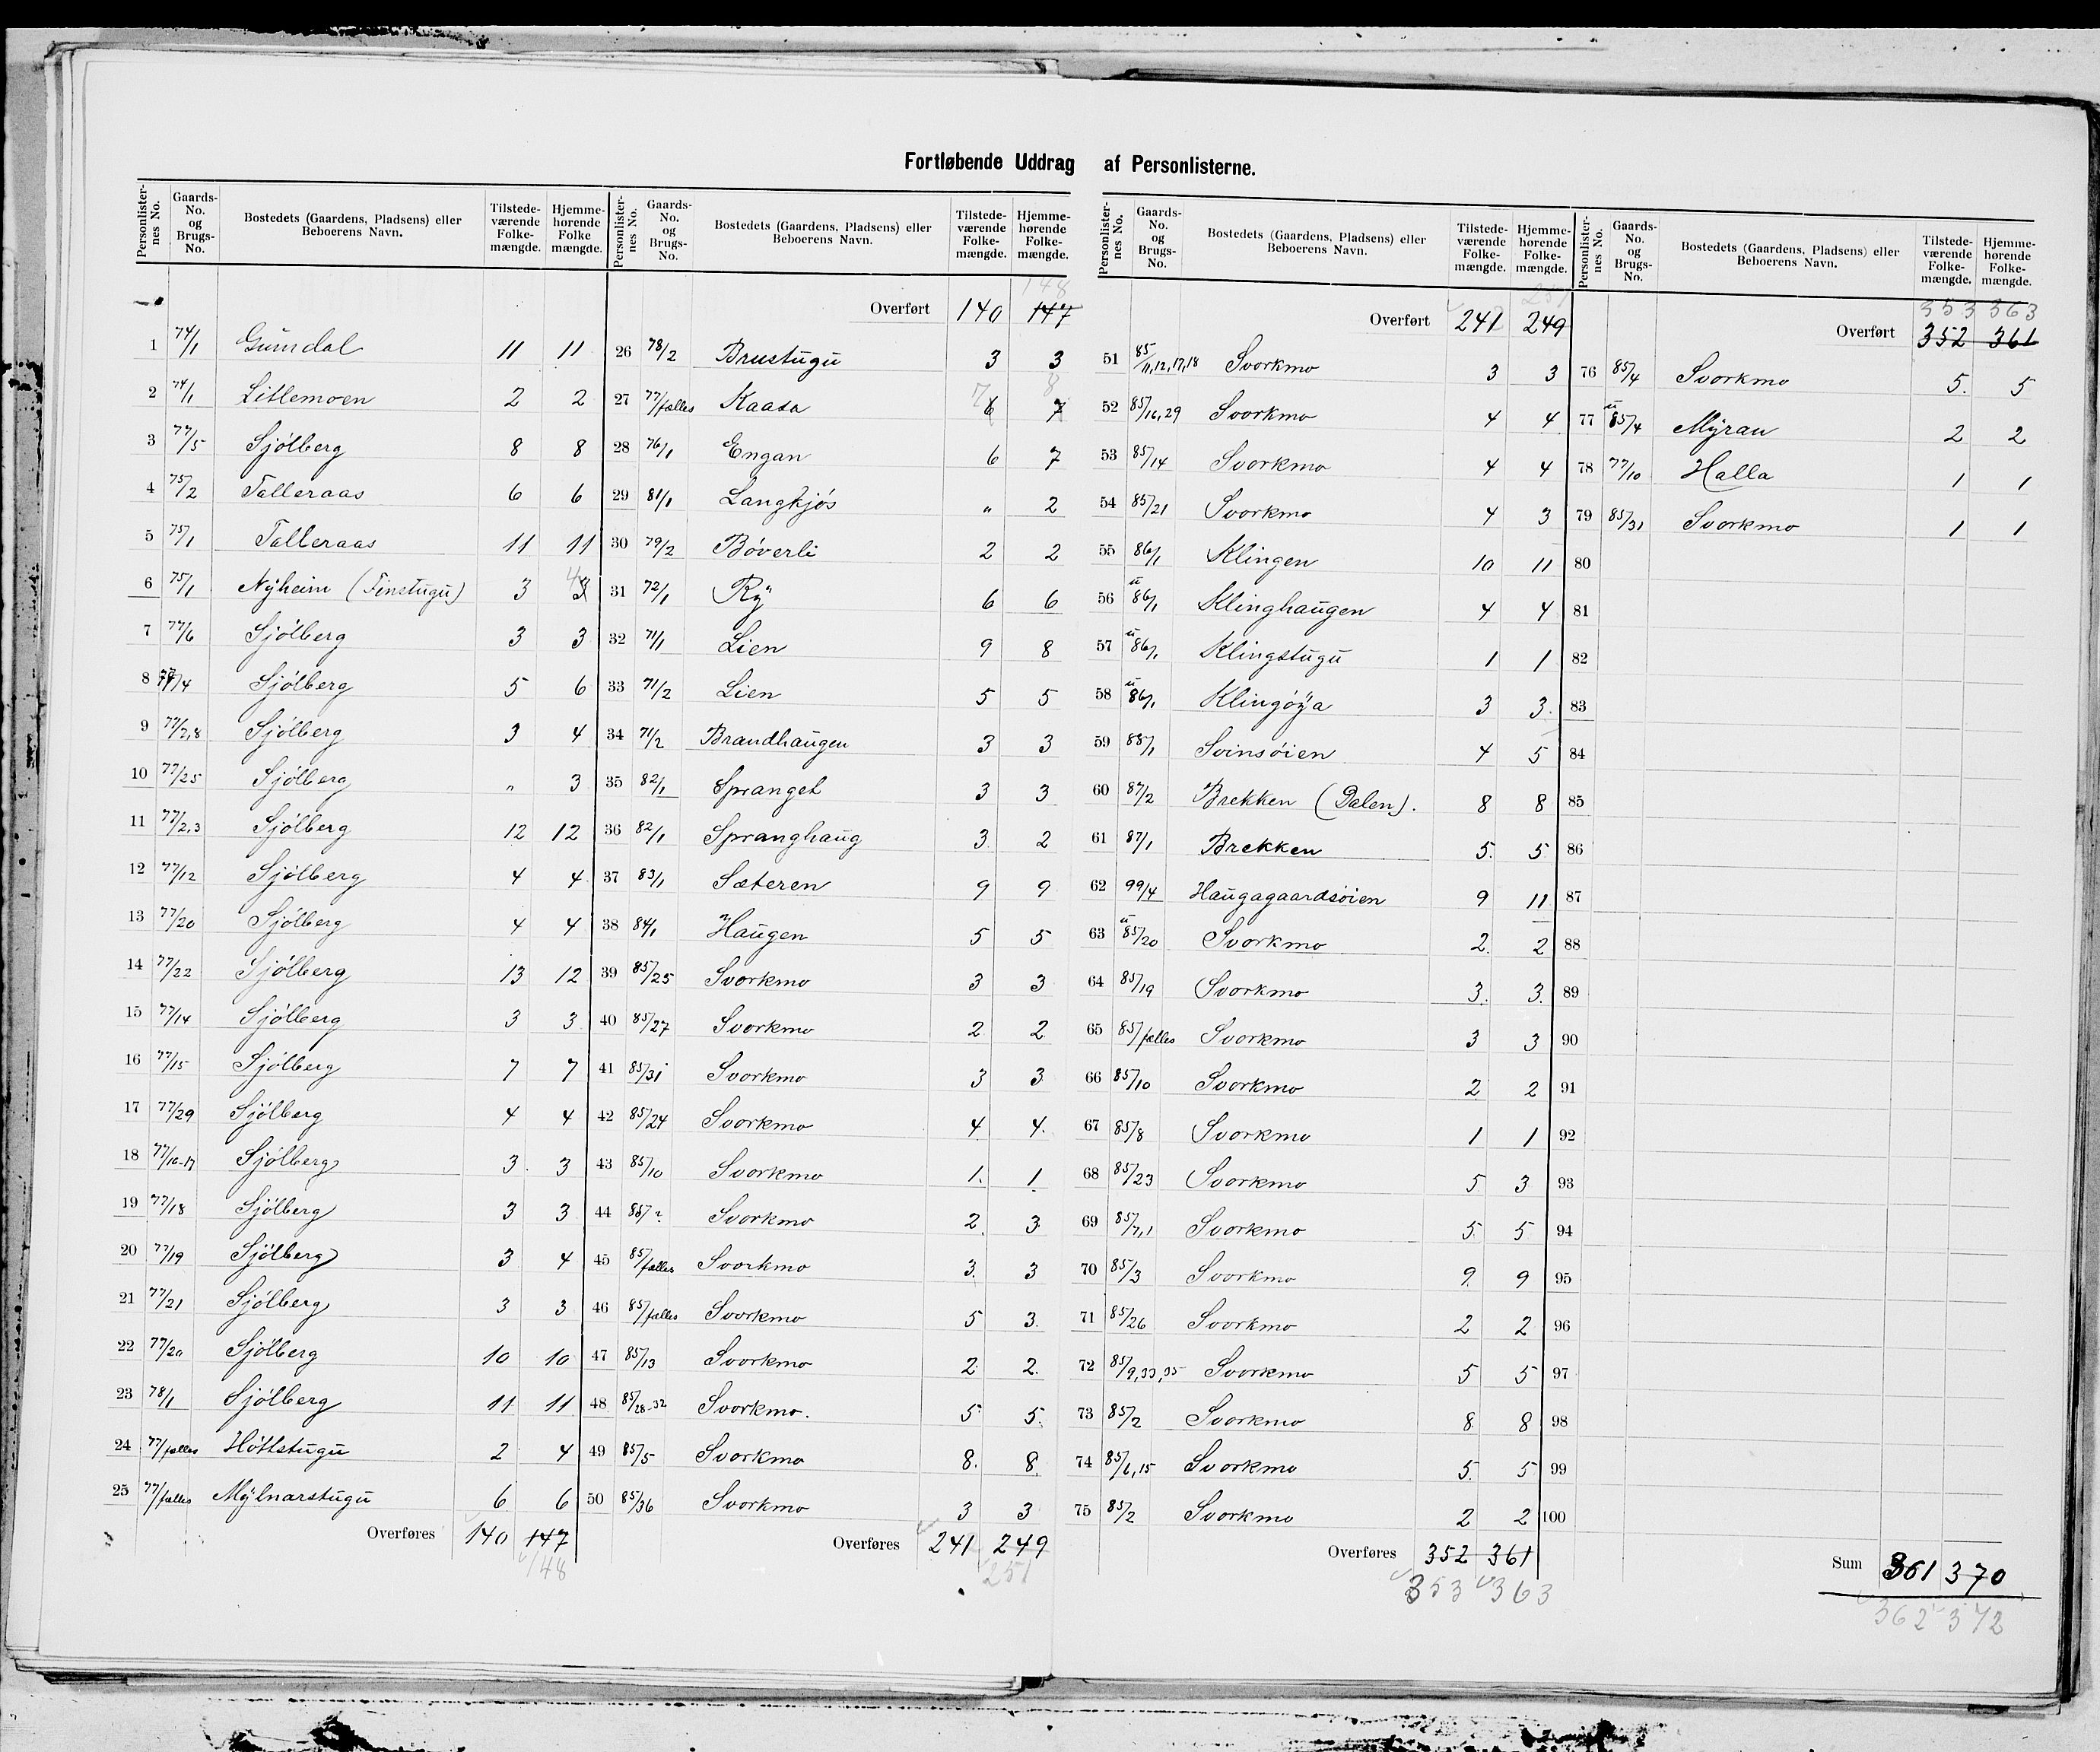 Fortløbende Uddrag af Personlisterne.
Personlisternes No. Gaards-No. og Brugs-No. Bostedets (Gaardens, Pladsens) eller Beboerens Navn. Tilstedeværende Folkemængde. Hjemmehørende Folkemængde.
1 74/1 Gumdal 11 11
2 74/1 Litlemoen 2 2
3 77/5 Sjölberg 8 8
4 75/2 Talleraas 6 6
5 75/1 Talleraas 11 11
6 75/1 Nyheim (Finstugu) 3 4 3
7 77/6 Sjölberg 3 3
8 77/4 Sjölberg 5 6
9 77/7,8 Sjölberg 3 4
10 77/25 Sjölberg " 3
11 77/2,3 Sjölberg 12 12
12 77/12 Sjölberg 4 4
13 77/20 Sjölberg 4 4
14 77/22 Sjölberg 13 12
15 77/14 Sjölberg 3 3
16 77/15 Sjölberg 7 7
17 77/29 Sjölberg 4 4
18 77/16-17 Sjölberg 3 3
19 77/18 Sjölberg 3 3
20 77/19 Sjölberg 3 4
21 77/21 Sjölberg 3 3
22 77/20 Sjölberg 10 10
23 78/1 Sjölberg 11 11
24 77/fælles Höttstugu 2 4
25 77/fælles Mylnarstugu 6 6
Overføres 140 147
148
Personlisternes No. Gaards-No. og Brugs-No. Bostedets (Gaardens, Pladsens) eller Beboerens Navn. Tilstedeværende Folkemængde. Hjemmehørende Folkemængde.
148
Overført 140 147
26 78/2 Brustugu 3 3
27 77/fælles Kaasa 7 6 8 7
28 76/1 Engan 6 7
29 81/1 Langkjös " 2
30 79/2 Böverli 2 2
31 72/1 Ry 6 6
32 71/1 Lien 9 8
33 71/2 Lien 5 5
34 71/2 Brandhaugen 3 3
35 82/1 Spranget 3 3
36 82/1 Spranghaug 3 2
37 83/1 Sæteren 9 9
38 84/1 Haugen 5 5
39 85/25 Svorkmo 3 3
40 85/27 Svorkmo 2 2
41 85/31 Svorkmo 3 3
42 85/24 Svorkmo 4 4
43 85/10 Svorkmo 1 1
44 85/ Svorkmo 2 3
45 85/fælles Svorkmo 3 3
46 85/fælles Svorkmo 5 3
47 85/13 Svorkmo 2 2
48 85/28-32 Svorkmo. 5 5
49 85/5 Svorkmo 8 8
50 85/36 Svorkmo 3 3
Overføres 241 249
251
Personlisternes No. Gaards-No. og Brugs-No. Bostedets (Gaardens, Pladsens) eller Beboerens Navn. Tilstedeværende Folkemængde. Hjemmehørende Folkemængde.
251
Overført 241 249
51 85/11,12,17,18 Svorkmo 3 3
52 85/16,29 Svorkmo 4 4
53 85/14 Svorkmo 4 4
54 85/21 Svorkmo 4 3
55 86/1 Klingen 10 11
56 u 86/1 Klinghaugen 4 4
57 u 86/1 Klingstugu 1 1
58 u 86/1 Klingöya 3 3
59 88/1 Svinsöien 4 5
60 87/2 Brekken (Dalen). 8 8
61 87/1 Brekken 5 5
62 99/4 Haugagaardsöien 9 11
63 u 85/20 Svorkmo 2 2
64 85/19 Svorkmo 3 3
65 85/fælles Svorkmo 3 3
66 85/10 Svorkmo 2 2
67 85/8 Svorkmo 1 1
68 85/23 Svorkmo 5 3
69 85/7,1 Svorkmo 5 5
70 85/3 Svorkmo 9 9
71 85/26 Svorkmo 2 2
72 85/9,33,35 Svorkmo 5 5
73 85/2 Svorkmo 8 8
74 85/6,15 Svorkmo 5 5
75 85/2 Svorkmo 2 2
Overføres 352 361
353 363
Personlisternes No. Gaards-No. og Brugs-No. Bostedets (Gaardens, Pladsens) eller Beboerens Navn. Tilstedeværende Folkemængde. Hjemmehørende Folkemængde.
353 363
Overført 352 361
76 85/4 Svorkmo 5 5
77 u 85/4 Myrau 2 2
78 77/10 Halla 1 1
79 85/31 Svorkmo 1 1
80
81
82
83
84
85
86
87
88
89
90
91
92
93
94
95
96
97
98
99
100
Sum 361 370
362 372